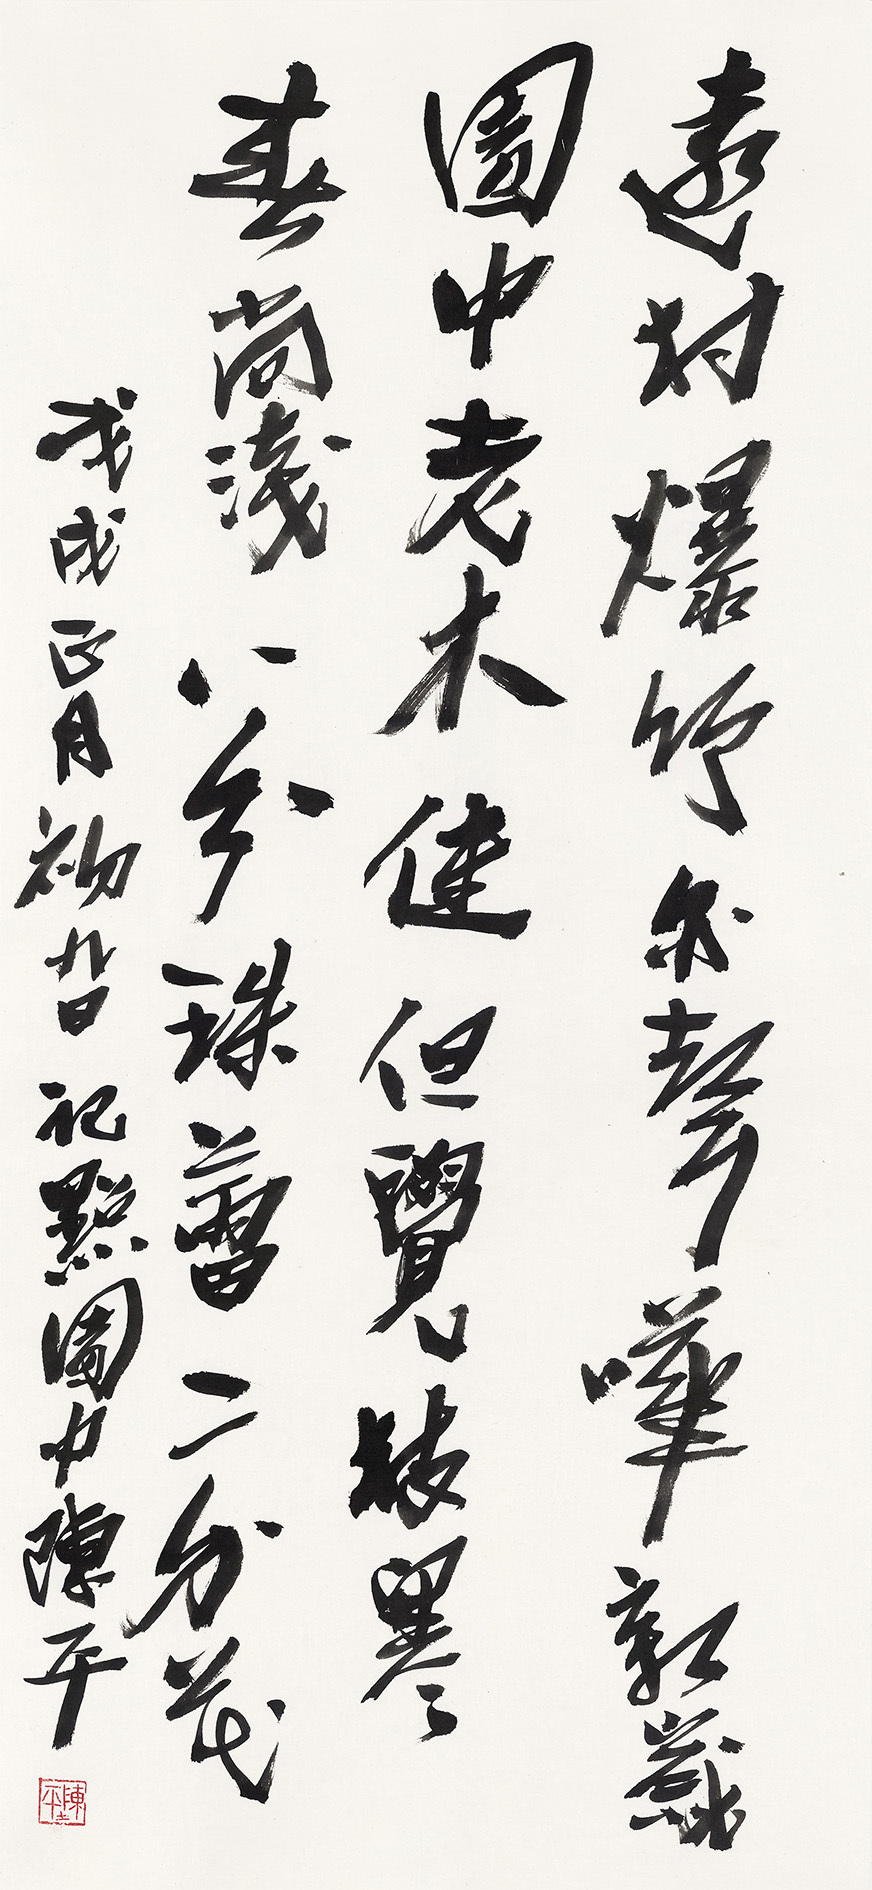 遠村爆竹尔聲嘩新歲
園中老木佳但覺枝墨
春尚淺八分珠蕾二分花
戊戌正月初九日記點園中陳平
陳平